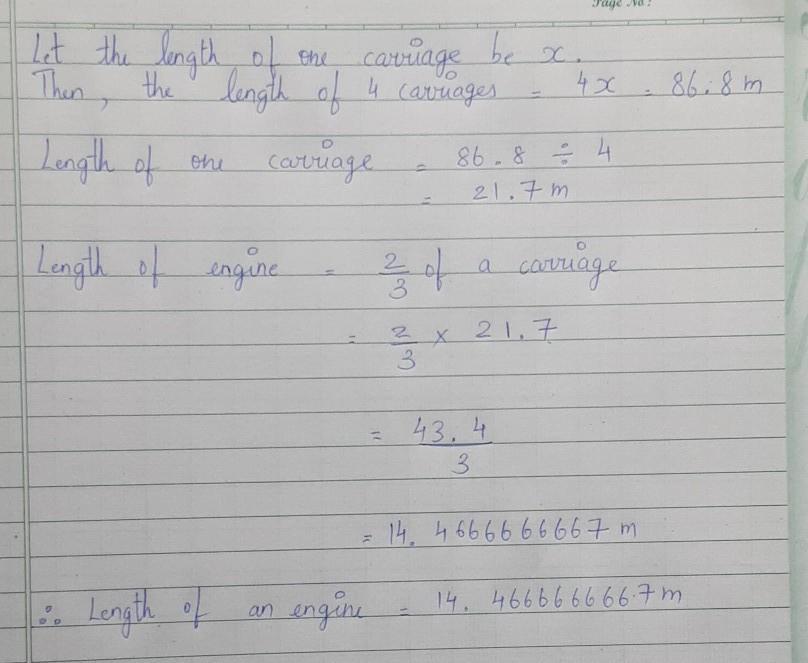 Page No:
Let the length of one carriage be x.
Then, the length of 4 carriages = 4x = 86.8 m
Length of one carriage = 86.8 ÷ 4
= 21.7 m
Length of engine = 2/3 of a carriage
= 2/3 × 21.7
= 43.4/3
= 14.4666666667 m
∴ Length of an engine = 14.466666666.7 m